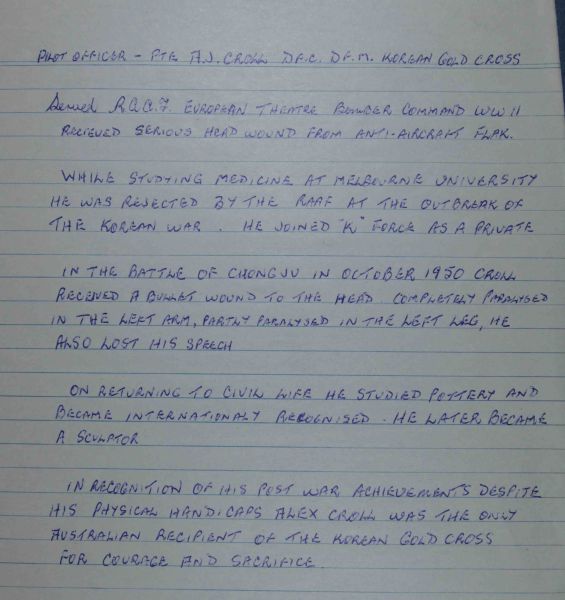 PILOT OFFICER - PTE A.J. CROLL D.F.C. D.F.M. KOREAN GOLD CROSS
Served R.A.A.F. EUROPEAN THEATRE BOMBER COMMAND WW II
RECIEVED SERIOUS HEAD WOUND FROM ANTI-AIRCRAFT FLAK.
WHILE STUDYING MEDICINE AT MELBOURNE UNIVERSITY
HE WAS REJECTED BY THE RAAF AT THE OUTBREAK OF
THE KOREAN WAR. HE JOINED "K" FORCE AS A PRIVATE
IN THE BATTLE OF CHONGJU IN OCTOBER 1950 CROLL
RECEIVED A BULLET WOUND TO THE HEAD. COMPLETELY PARALYSED
IN THE LEFT ARM, PARTLY PARALYSED IN THE LEFT LEG, HE
ALSO LOST HIS SPEECH
ON RETURNING TO CIVIL LIFE HE STUDIED POTTERY AND
BECAME INTERNATIONALY RECOGNISED. HE LATER BECAME
A SCULPTOR
IN RECOGNITION OF HIS POST WAR ACHIEVEMENTS DESPITE
HIS PHYSICAL HANDICAPS ALEX CROLL WAS THE ONLY
AUSTRALIAN RECIPIENT OF THE KOREAN GOLD CROSS
FOR COURAGE AND SACRIFICE.